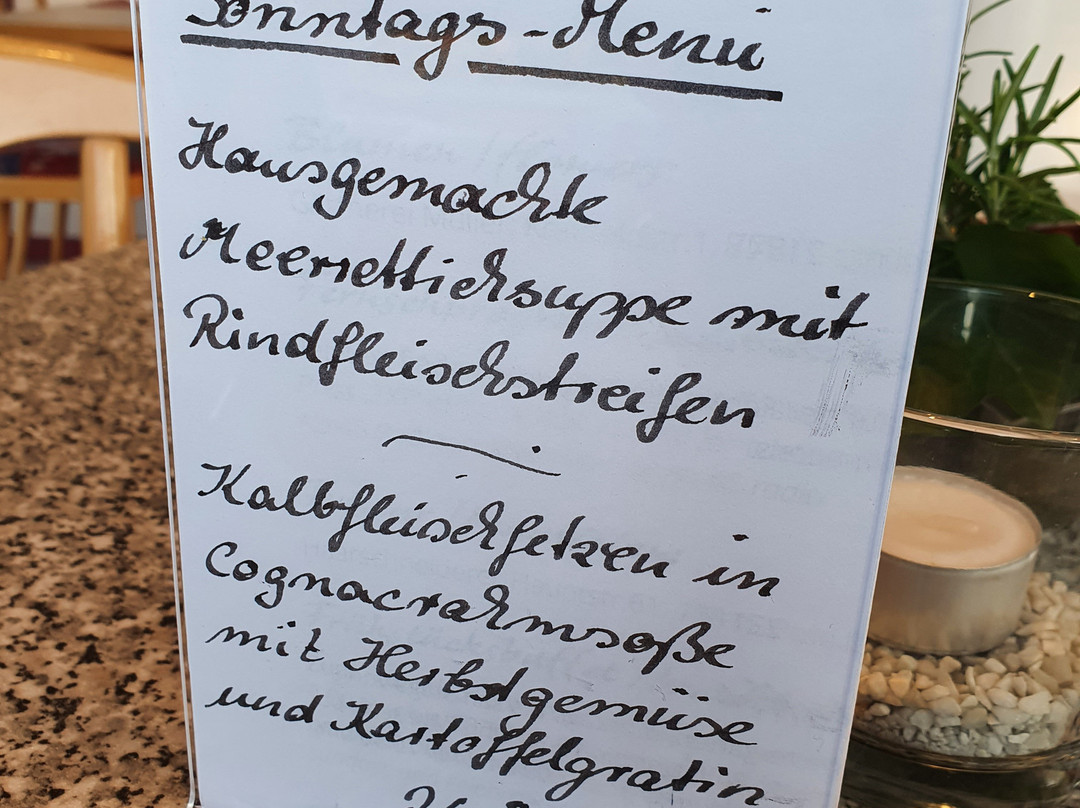 Sonntags-Menü
Hausgemachte
Meerrettichsuppe mit
Rindfleischstreifen
Kalbfleischfetzen in
Cognacrahmsoße
mit Herbstgemüse
und Kartoffelgratin